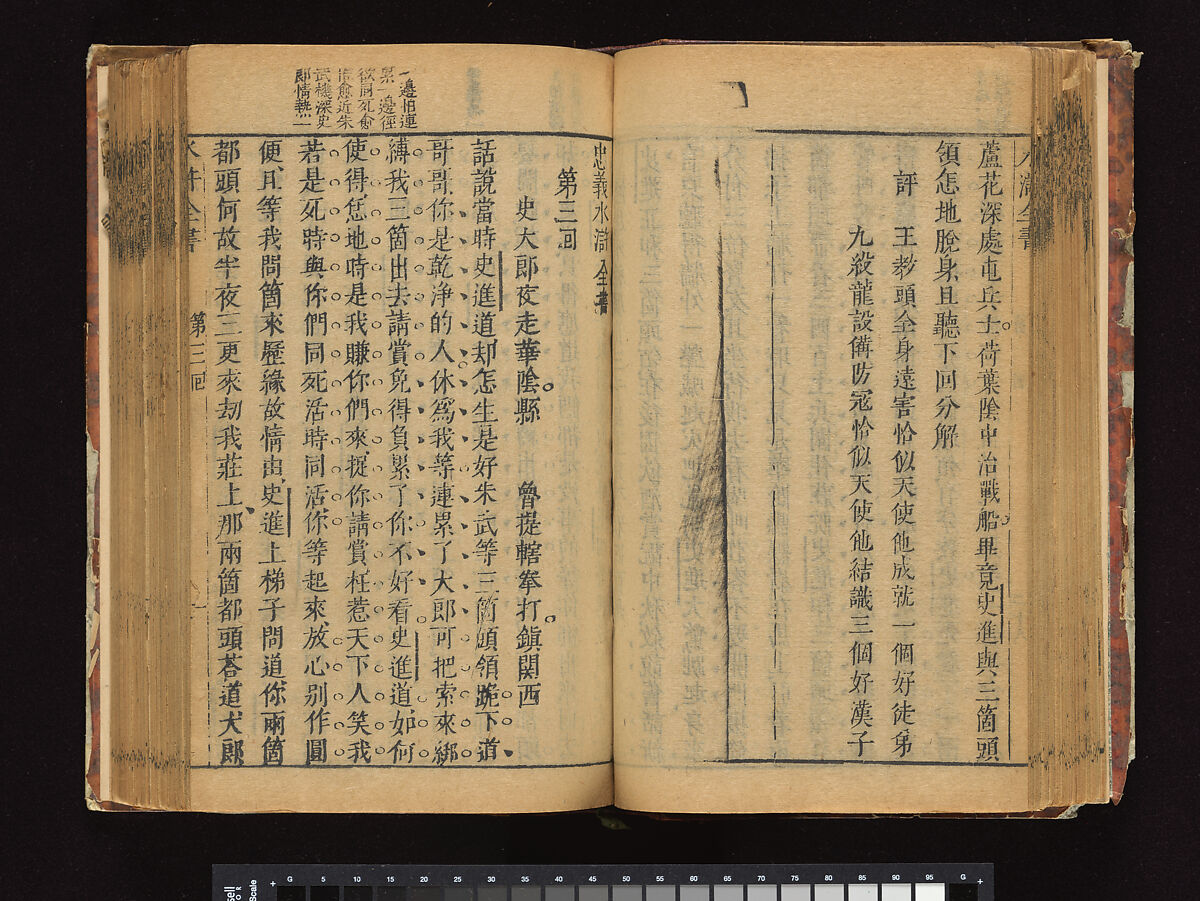 蘆花深處屯兵士荷葉陰中治戰船畢竟史進與三箇頭
領怎地脫身且聽下回分解
評
王教頭全身遠害恰似天使他成就一個好徒弟
九紋龍設備防寇恰似天使他結識三個好漢子
忠義水滸全書
第三回
史大郎夜走華陰縣 魯提轄拳打鎮関西
話說當時史進道却怎生是好朱武等三箇頭領跪下道
哥哥你是乾淨的人休爲我等連累了大郎可把索來綁
縛我三箇出去請賞免得負累了你不好看史進道如何
使得恁地時是我賺你們來捉你請賞枉惹天下人笑我
若是死時與你們同死活時同活你等起來放心別作圓
便且等我問箇來歷緣故情由史進上梯子問道你兩箇
都頭何故半夜三更來劫我莊上那兩箇都頭荅道大郎
一邊怕連
累一邊徑
欲同死愈
愈近朱
武機深史
郎情熱
水滸全書
第三回